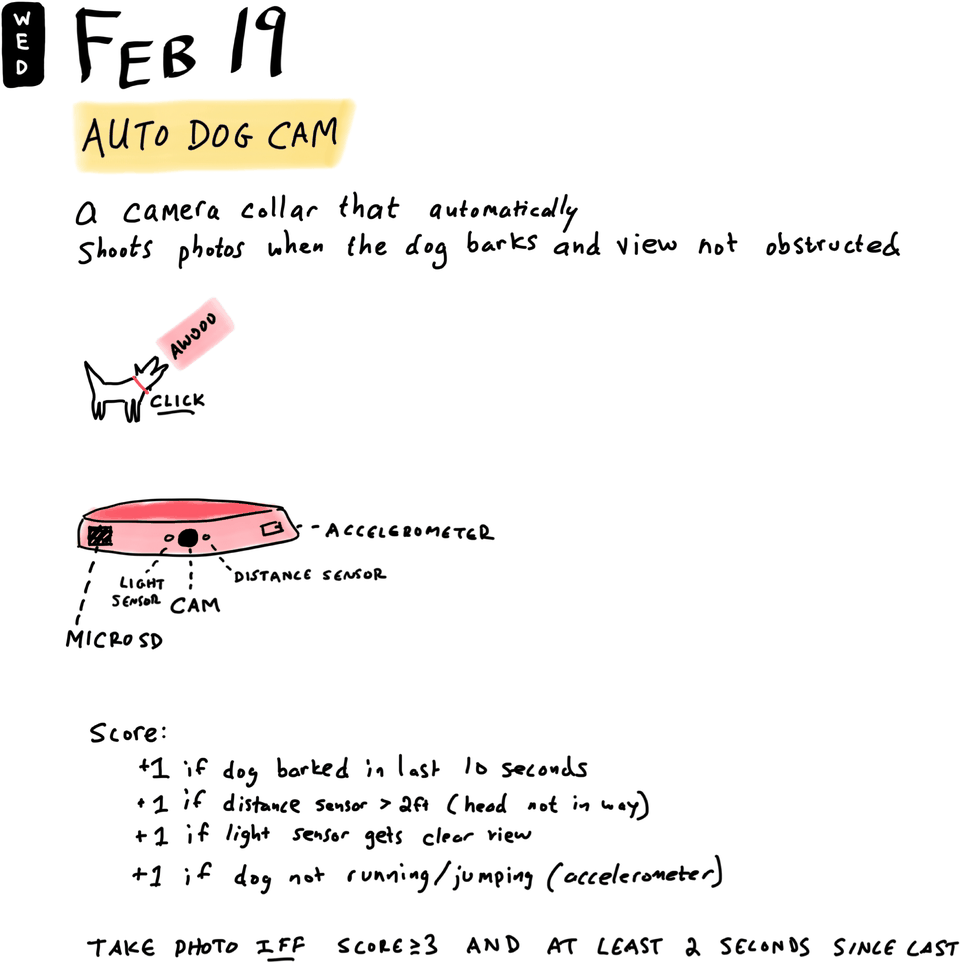 WED
FEB 19
AUTO DOG CAM
a camera collar that automatically
shoots photos when the dog barks and view not obstructed
AWOOO
CLICK
ACCELEROMETER
LIGHT
SENSOR
DISTANCE SENSOR
CAM
MICRO SD
Score:
+1 if dog barked in last 10 seconds
+1 if distance sensor > 2ft (head not in way)
+1 if light sensor gets clear view
+1 if dog not running/jumping (accelerometer)
TAKE PHOTO IFF SCORE≥3 AND AT LEAST 2 SECONDS SINCE LAST